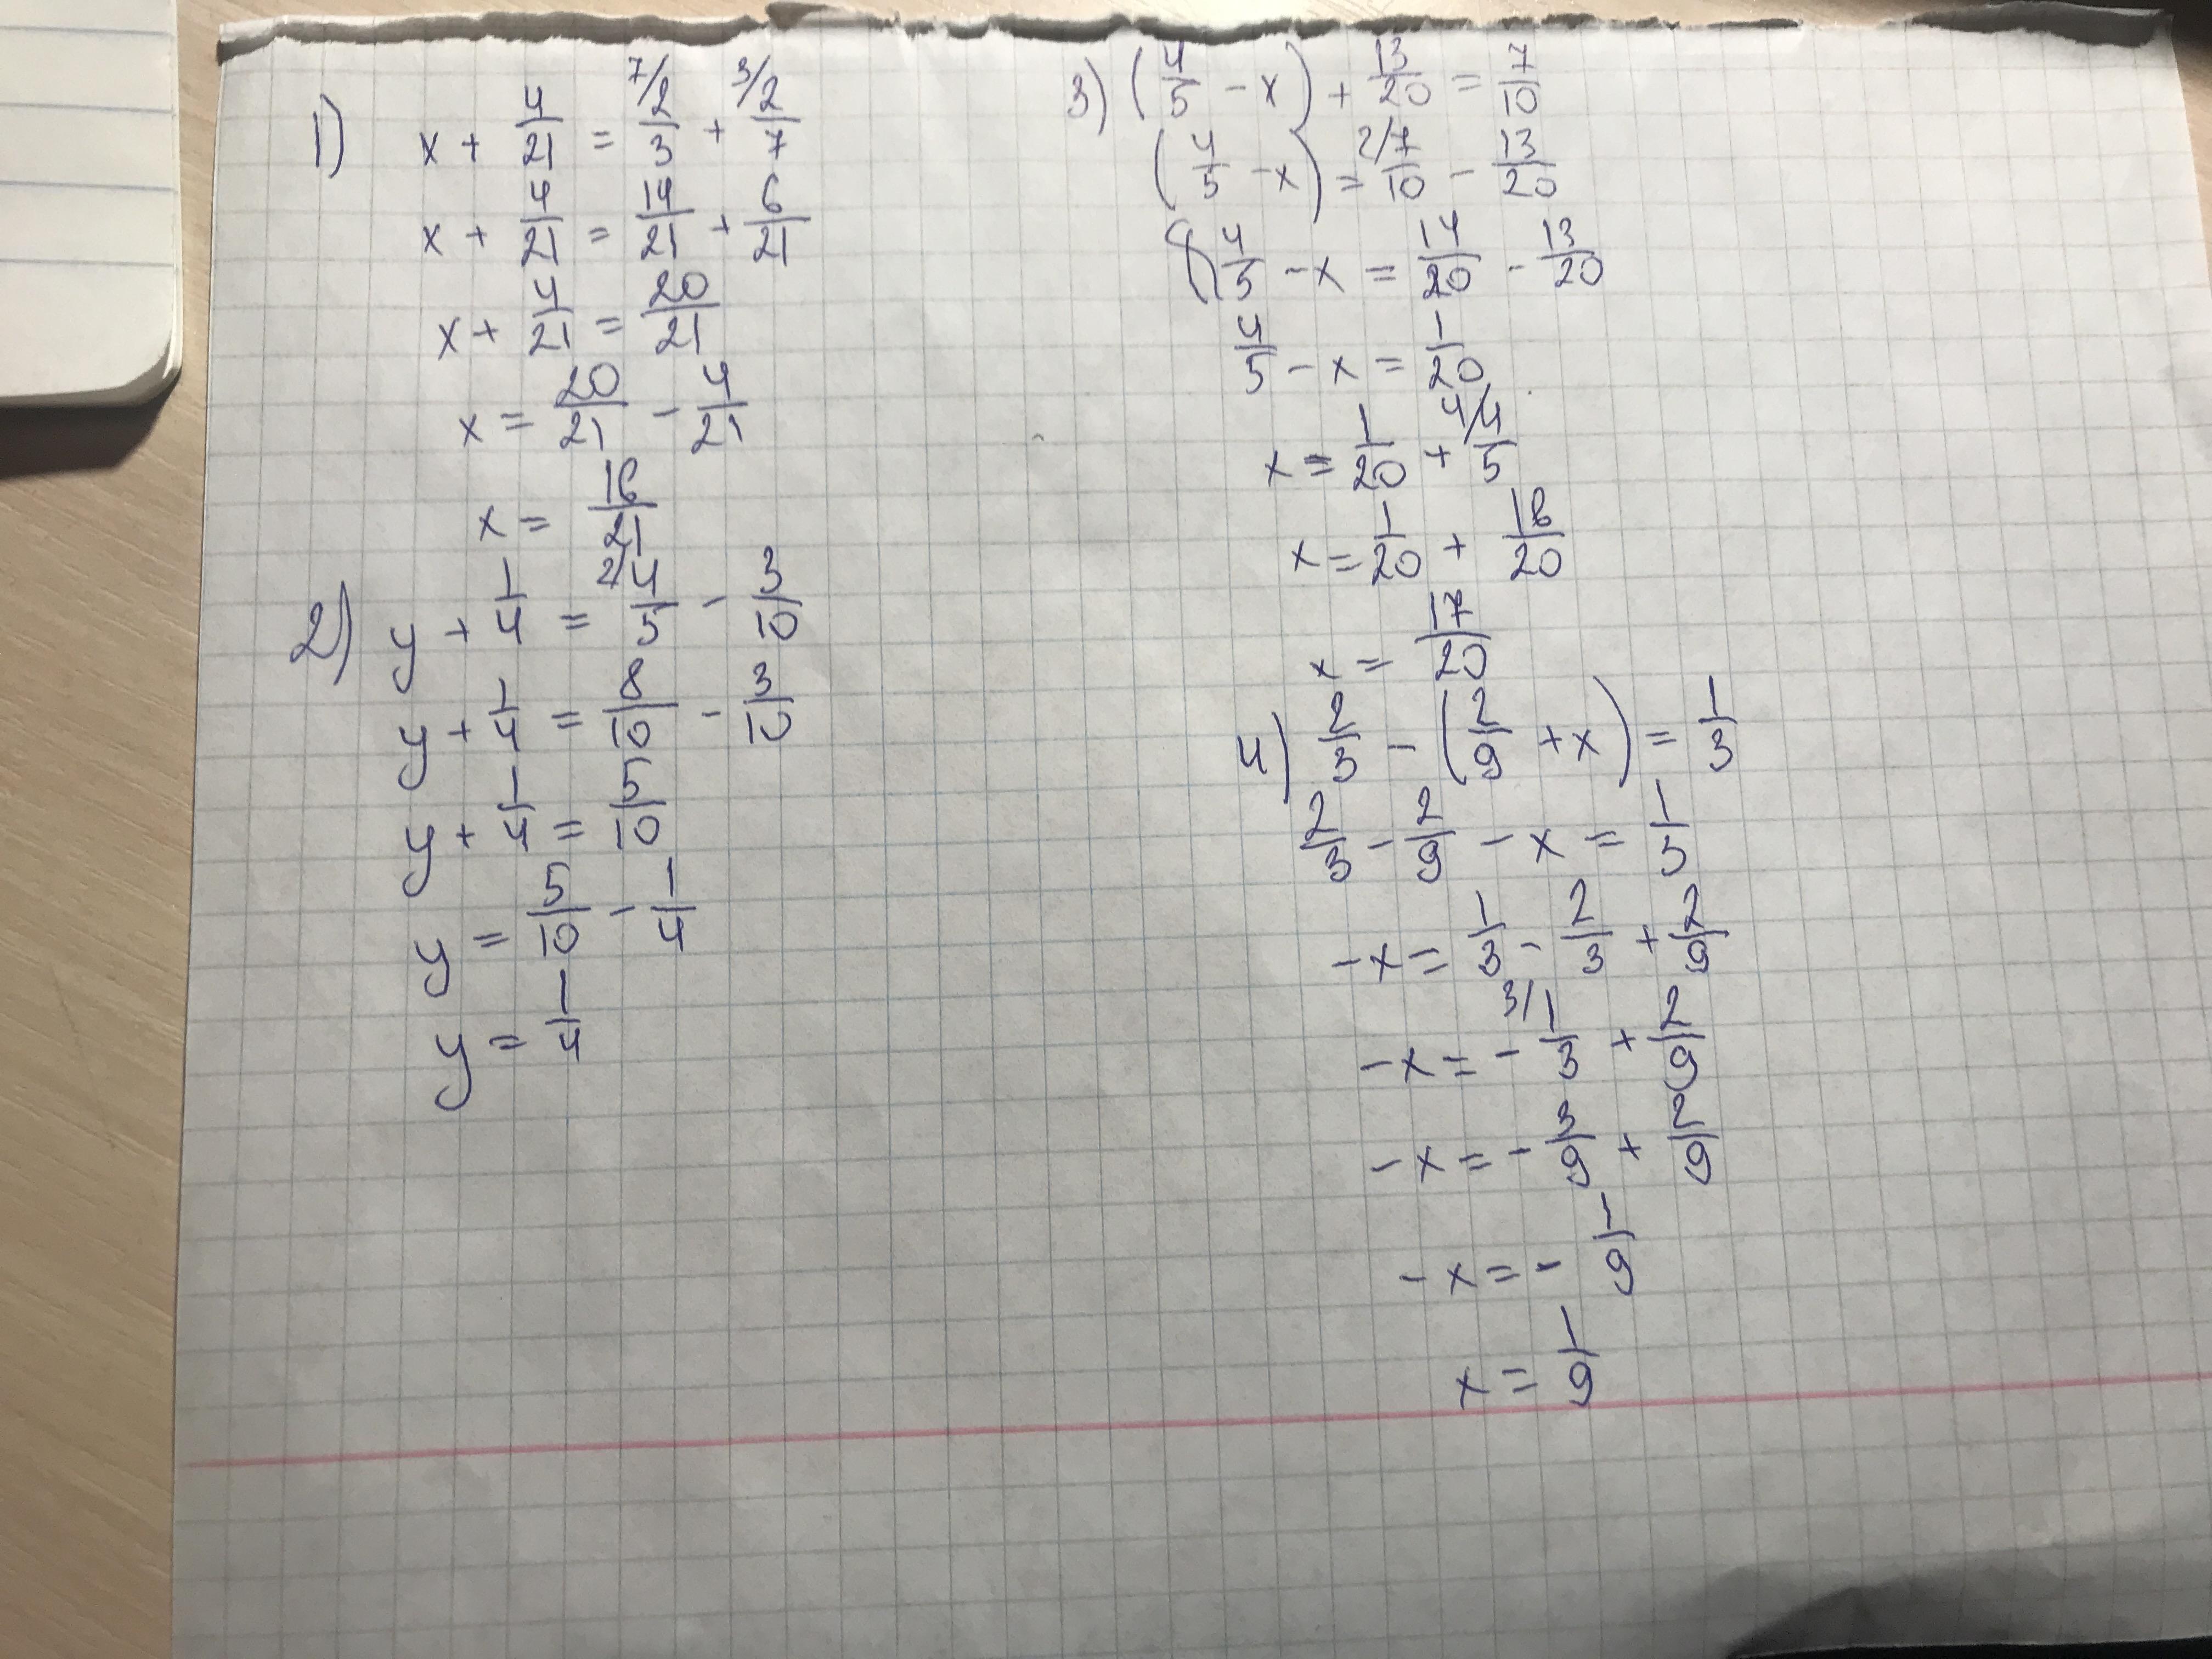 1) x + 4/21 = 7/ 2/3 + 3/ 2/7
x + 4/21 = 14/21 + 6/21
x + 4/21 = 20/21
x = 20/21 - 4/21
x = 16/21
2) y + 1/4 = 2/ 4/5 - 3/10
y + 1/4 = 8/10 - 3/10
y + 1/4 = 5/10
y = 5/10 - 1/4
y = 1/4
3) (4/5 - x) + 13/20 = 7/10
(4/5 - x) = 2/ 7/10 - 13/20
4/5 - x = 14/20 - 13/20
4/5 - x = 1/20
x = 1/20 + 4/ 4/5
x = 1/20 + 16/20
x = 17/20
4) 2/3 - (2/9 + x) = 1/3
2/3 - 2/9 - x = 1/3
-x = 1/3 - 2/3 + 2/9
-x = - 3/ 1/3 + 2/9
-x = - 3/9 + 2/9
-x = - 1/9
x = 1/9